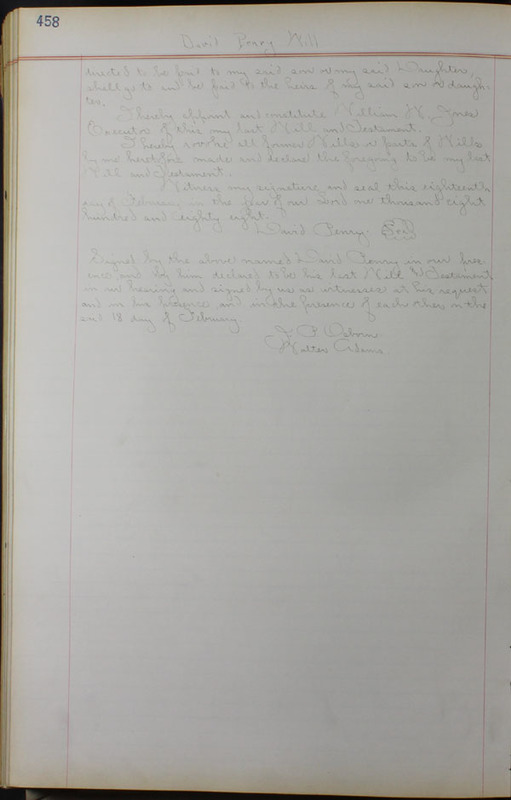 458
David Penry Will
directed to be paid to my said son or my said Daughter,
shall go to and be paid to the heirs of my said son or daugh-
ter.
I hereby appoint and constitute William W. Jones
Executor of this my last Will and Testament.
I hereby revoke all former Wills or parts of Wills
by me heretofore made and declare the foregoing to be my last
Will and Testament.
Witness my signature and seal this eighteenth
day of February in the year of our Lord one thousand eight
hundred and eighty eight.
David Penry. Seal
Signed by the above named David Penry in our pres-
ence and by him declared to be his last Will and Testament
in our hearing and signed by us as witnesses at his request
and in his presence and in the presence of each other on the
said 18 day of February.
J. P. Osborn.
Walter Adams